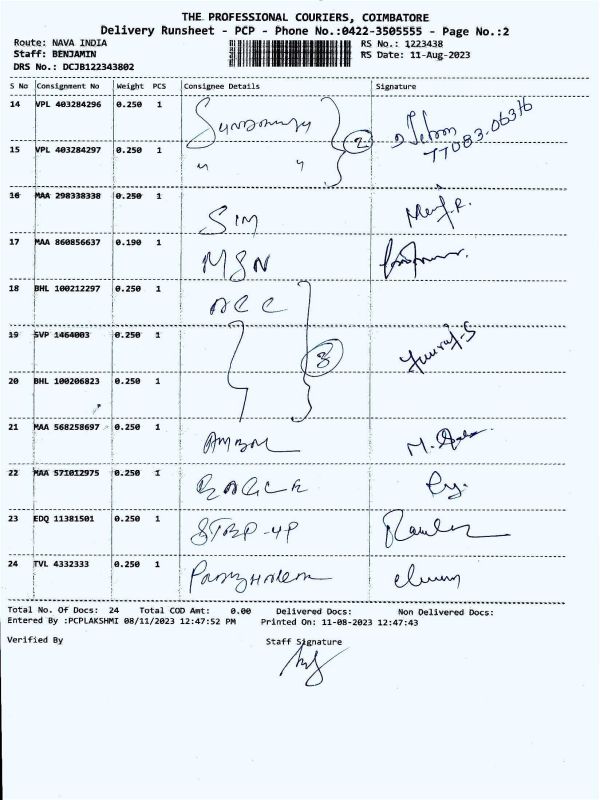 THE PROFESSIONAL COURIERS, COIMBATORE
Delivery Runsheet - PCP - Phone No.:0422-3505555 - Page No.:2
Route: NAVA INDIA
Staff: BENJAMIN
DRS No.: DCJB122343802
RS No.: 1223438
RS Date: 11-Aug-2023
S No Consignment No Weight PCS Consignee Details Signature
14 VPL 403284296 0.250 1
2
77083-06376
15 VPL 403284297 0.250 1 " "
16 MAA 298338338 0.250 1 SIM
17 MAA 860856637 0.190 1 MSN
18 BHL 100212297 0.250 1 ACC
19 SVP 1464003 0.250 1
3
Yuvraj.S
20 BHL 100206823 0.250 1
21 MAA 568258697 0.250 1
22 MAA 571012975 0.250 1
23 EDQ 11381501 0.250 1
24 TVL 4332333 0.250 1
Total No. Of Docs: 24 Total COD Amt: 0.00 Delivered Docs: Non Delivered Docs:
Entered By :PCPLAKSHMI 08/11/2023 12:47:52 PM Printed On: 11-08-2023 12:47:43
Verified By Staff Signature